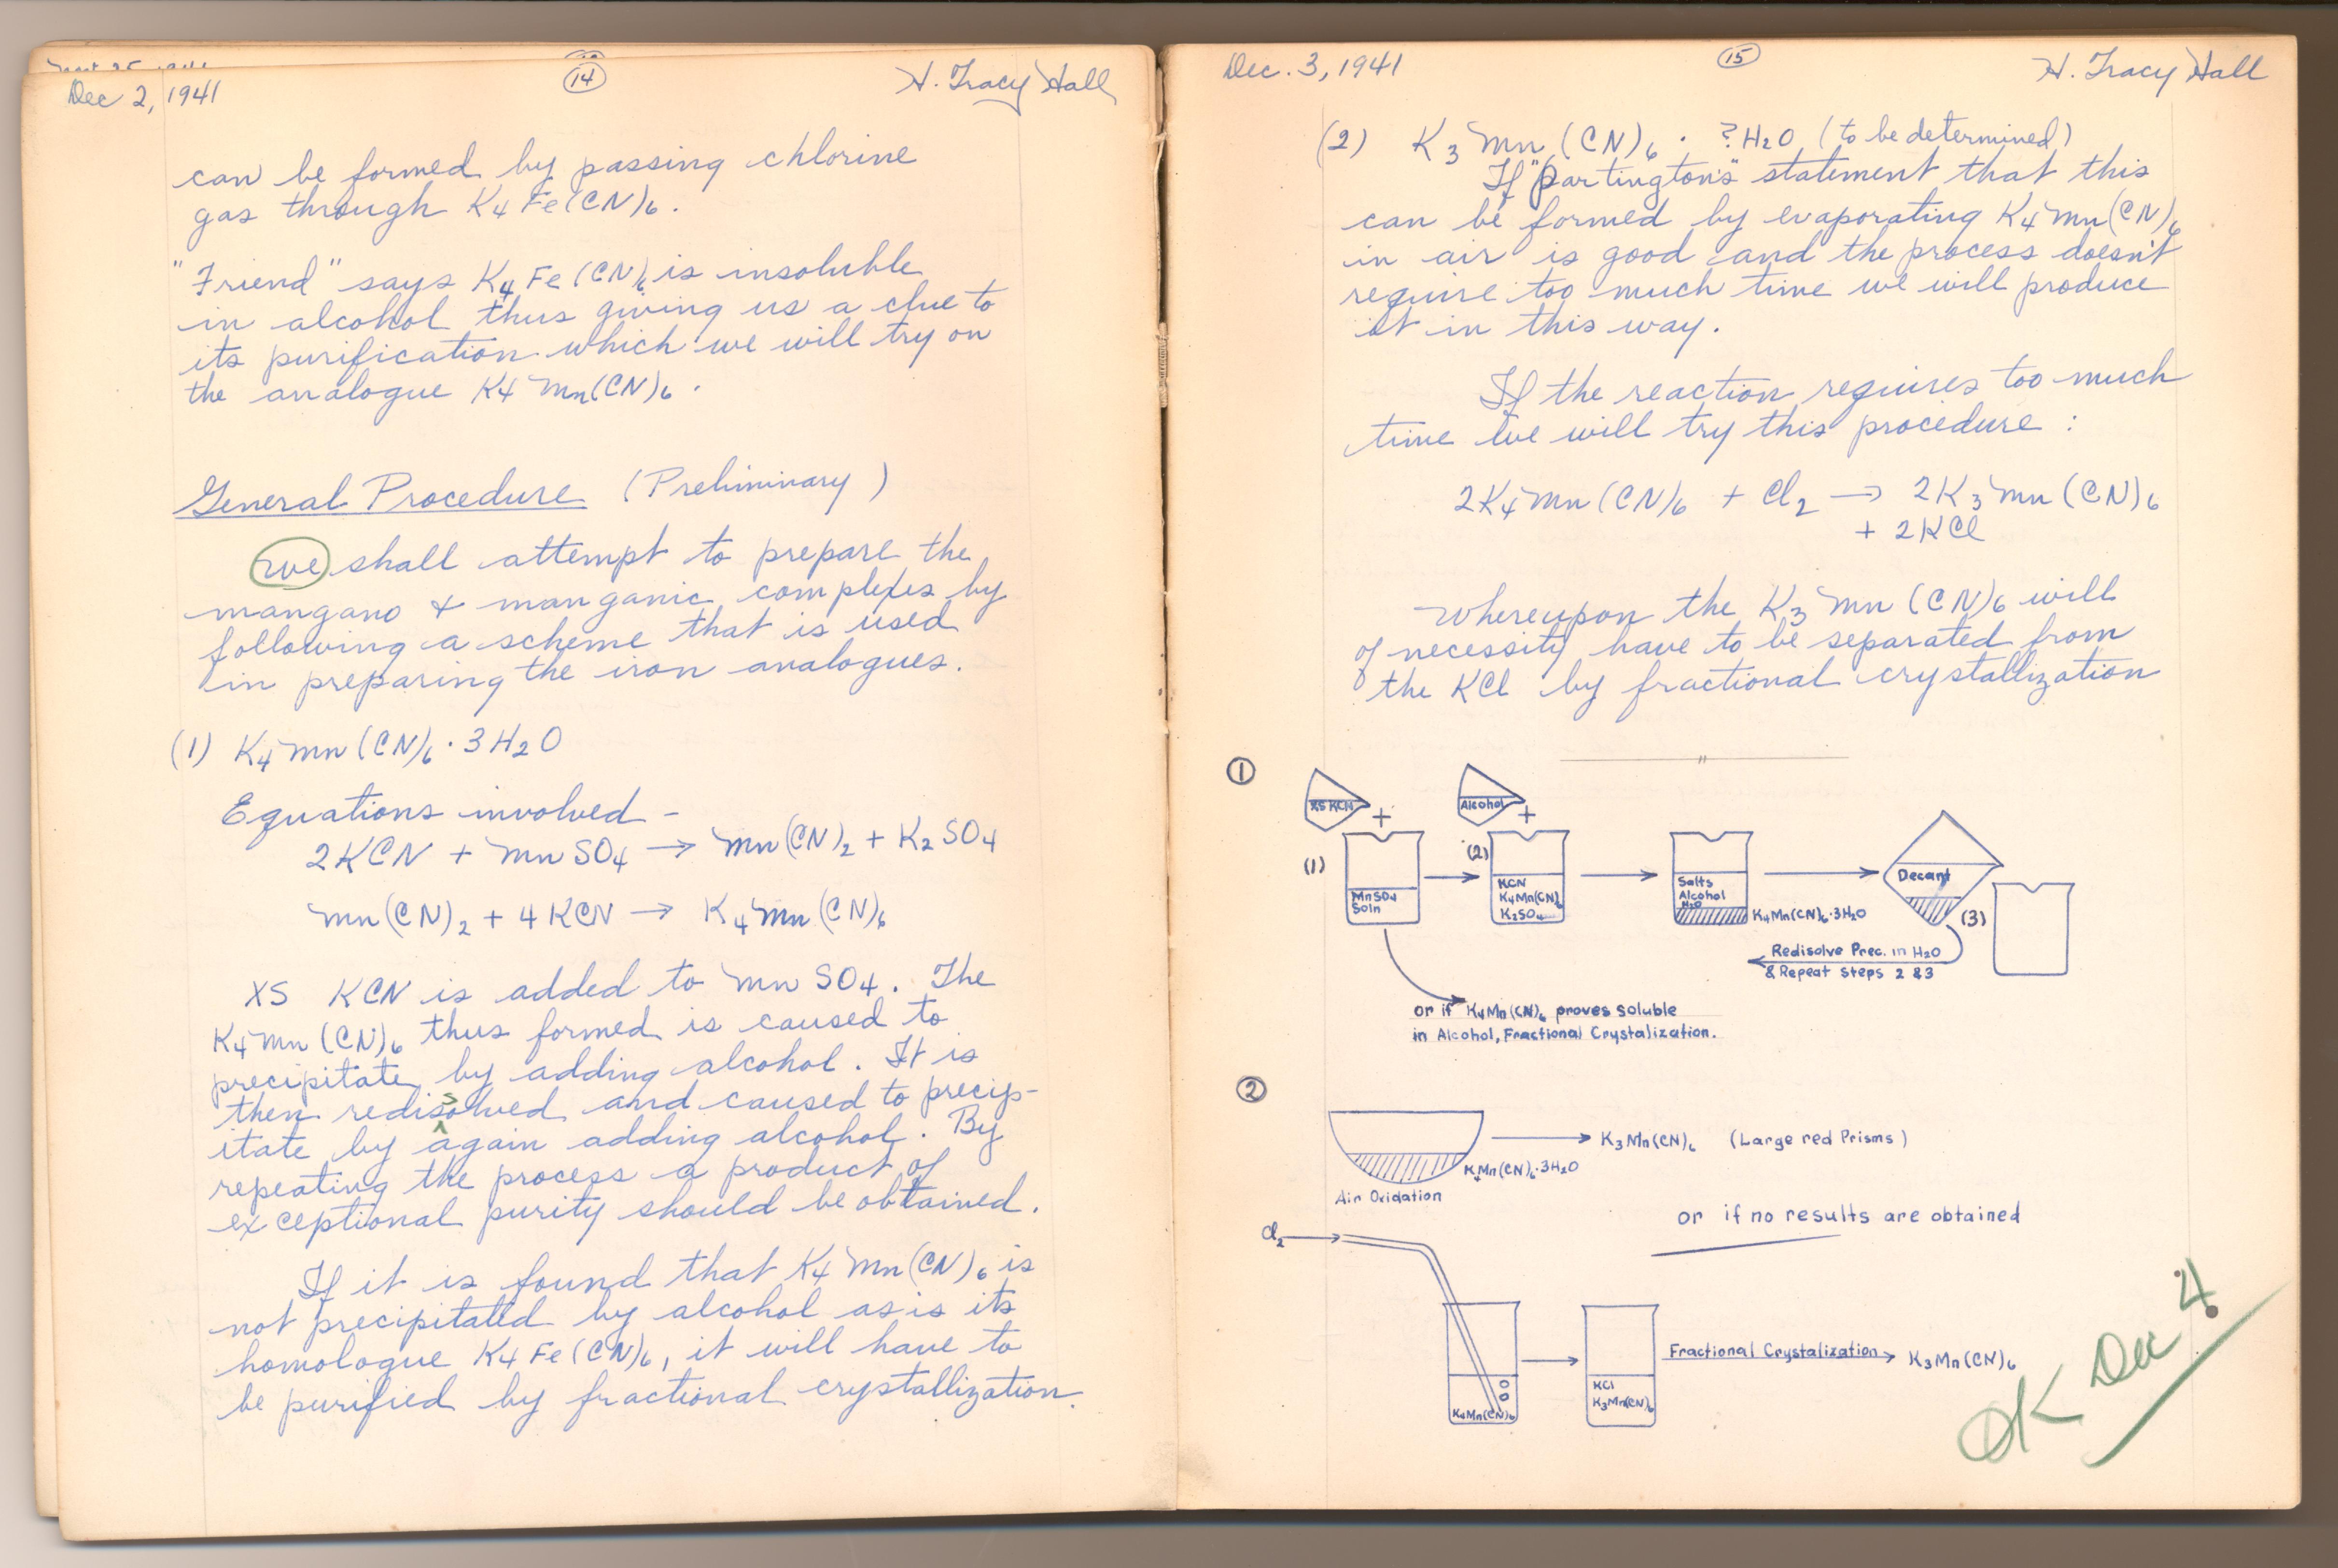 Dec 2, 1941
14
H. Tracy Hall
can be formed by passing chlorine
gas through K4 Fe(CN)6.
"Friend" says K4 Fe(CN)6 is insoluble
in alcohol thus giving us a clue to
its purification which we will try on
the analogue K4 Mn(CN)6.
General Procedure (Preliminary)
we shall attempt to prepare the
mangano & manganic complexes by
following a scheme that is used
in preparing the iron analogues.
(1) K4 Mn(CN)6 · 3H2O
Equations involved -
2KCN + MnSO4 → Mn(CN)2 + K2SO4
Mn(CN)2 + 4KCN → K4Mn(CN)6
XS KCN is added to MnSO4. The
K4Mn(CN)6 thus formed is caused to
precipitate by adding alcohol. It is
then redissolved and caused to precip-
itate by again adding alcohol. By
repeating the process a product of
exceptional purity should be obtained.
If it is found that K4 Mn(CN)6 is
not precipitated by alcohol as is its
homologue K4 Fe(CN)6, it will have to
be purified by fractional crystallization.
Dec. 3, 1941
15
H. Tracy Hall
(2) K3 Mn(CN)6 · ?H2O (to be determined)
If "Partington's" statement that this
can be formed by evaporating K4Mn(CN)6
in air is good and the process doesn't
require too much time we will produce
it in this way.
If the reaction requires too much
time we will try this procedure :
2K4Mn(CN)6 + Cl2 → 2K3Mn(CN)6
+ 2KCl
Whereupon the K3 Mn(CN)6 will
of necessity have to be separated from
the KCl by fractional crystallization
"
1
XS KCN +
Alcohol +
(1)
(2)
MnSO4
Soln
KCN
K4Mn(CN)6
K2SO4
Salts
Alcohol
H2O
K4Mn(CN)6·3H2O
Decant
(3)
Redisolve Prec. in H2O
& Repeat Steps 2 & 3
or if K4Mn(CN)6 proves soluble
in Alcohol, Fractional Crystalization.
2
K4Mn(CN)6·3H2O
K3Mn(CN)6 (Large red Prisms)
Air Oxidation
or if no results are obtained
Cl2
K4Mn(CN)6
KCl
K3Mn(CN)6
Fractional Crystalization
K3Mn(CN)6
OK Dec 4